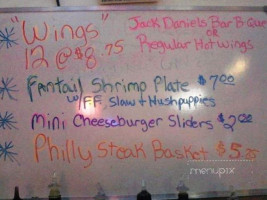 "Wings" Jack Daniels Bar B Que
OR
12 @ $8.75 Regular Hotwings
Fantail Shrimp Plate $7.00
w/ FF Slaw + Hushpuppies
Mini Cheeseburger Sliders $2.00
Philly Steak Basket $5.75
menupix